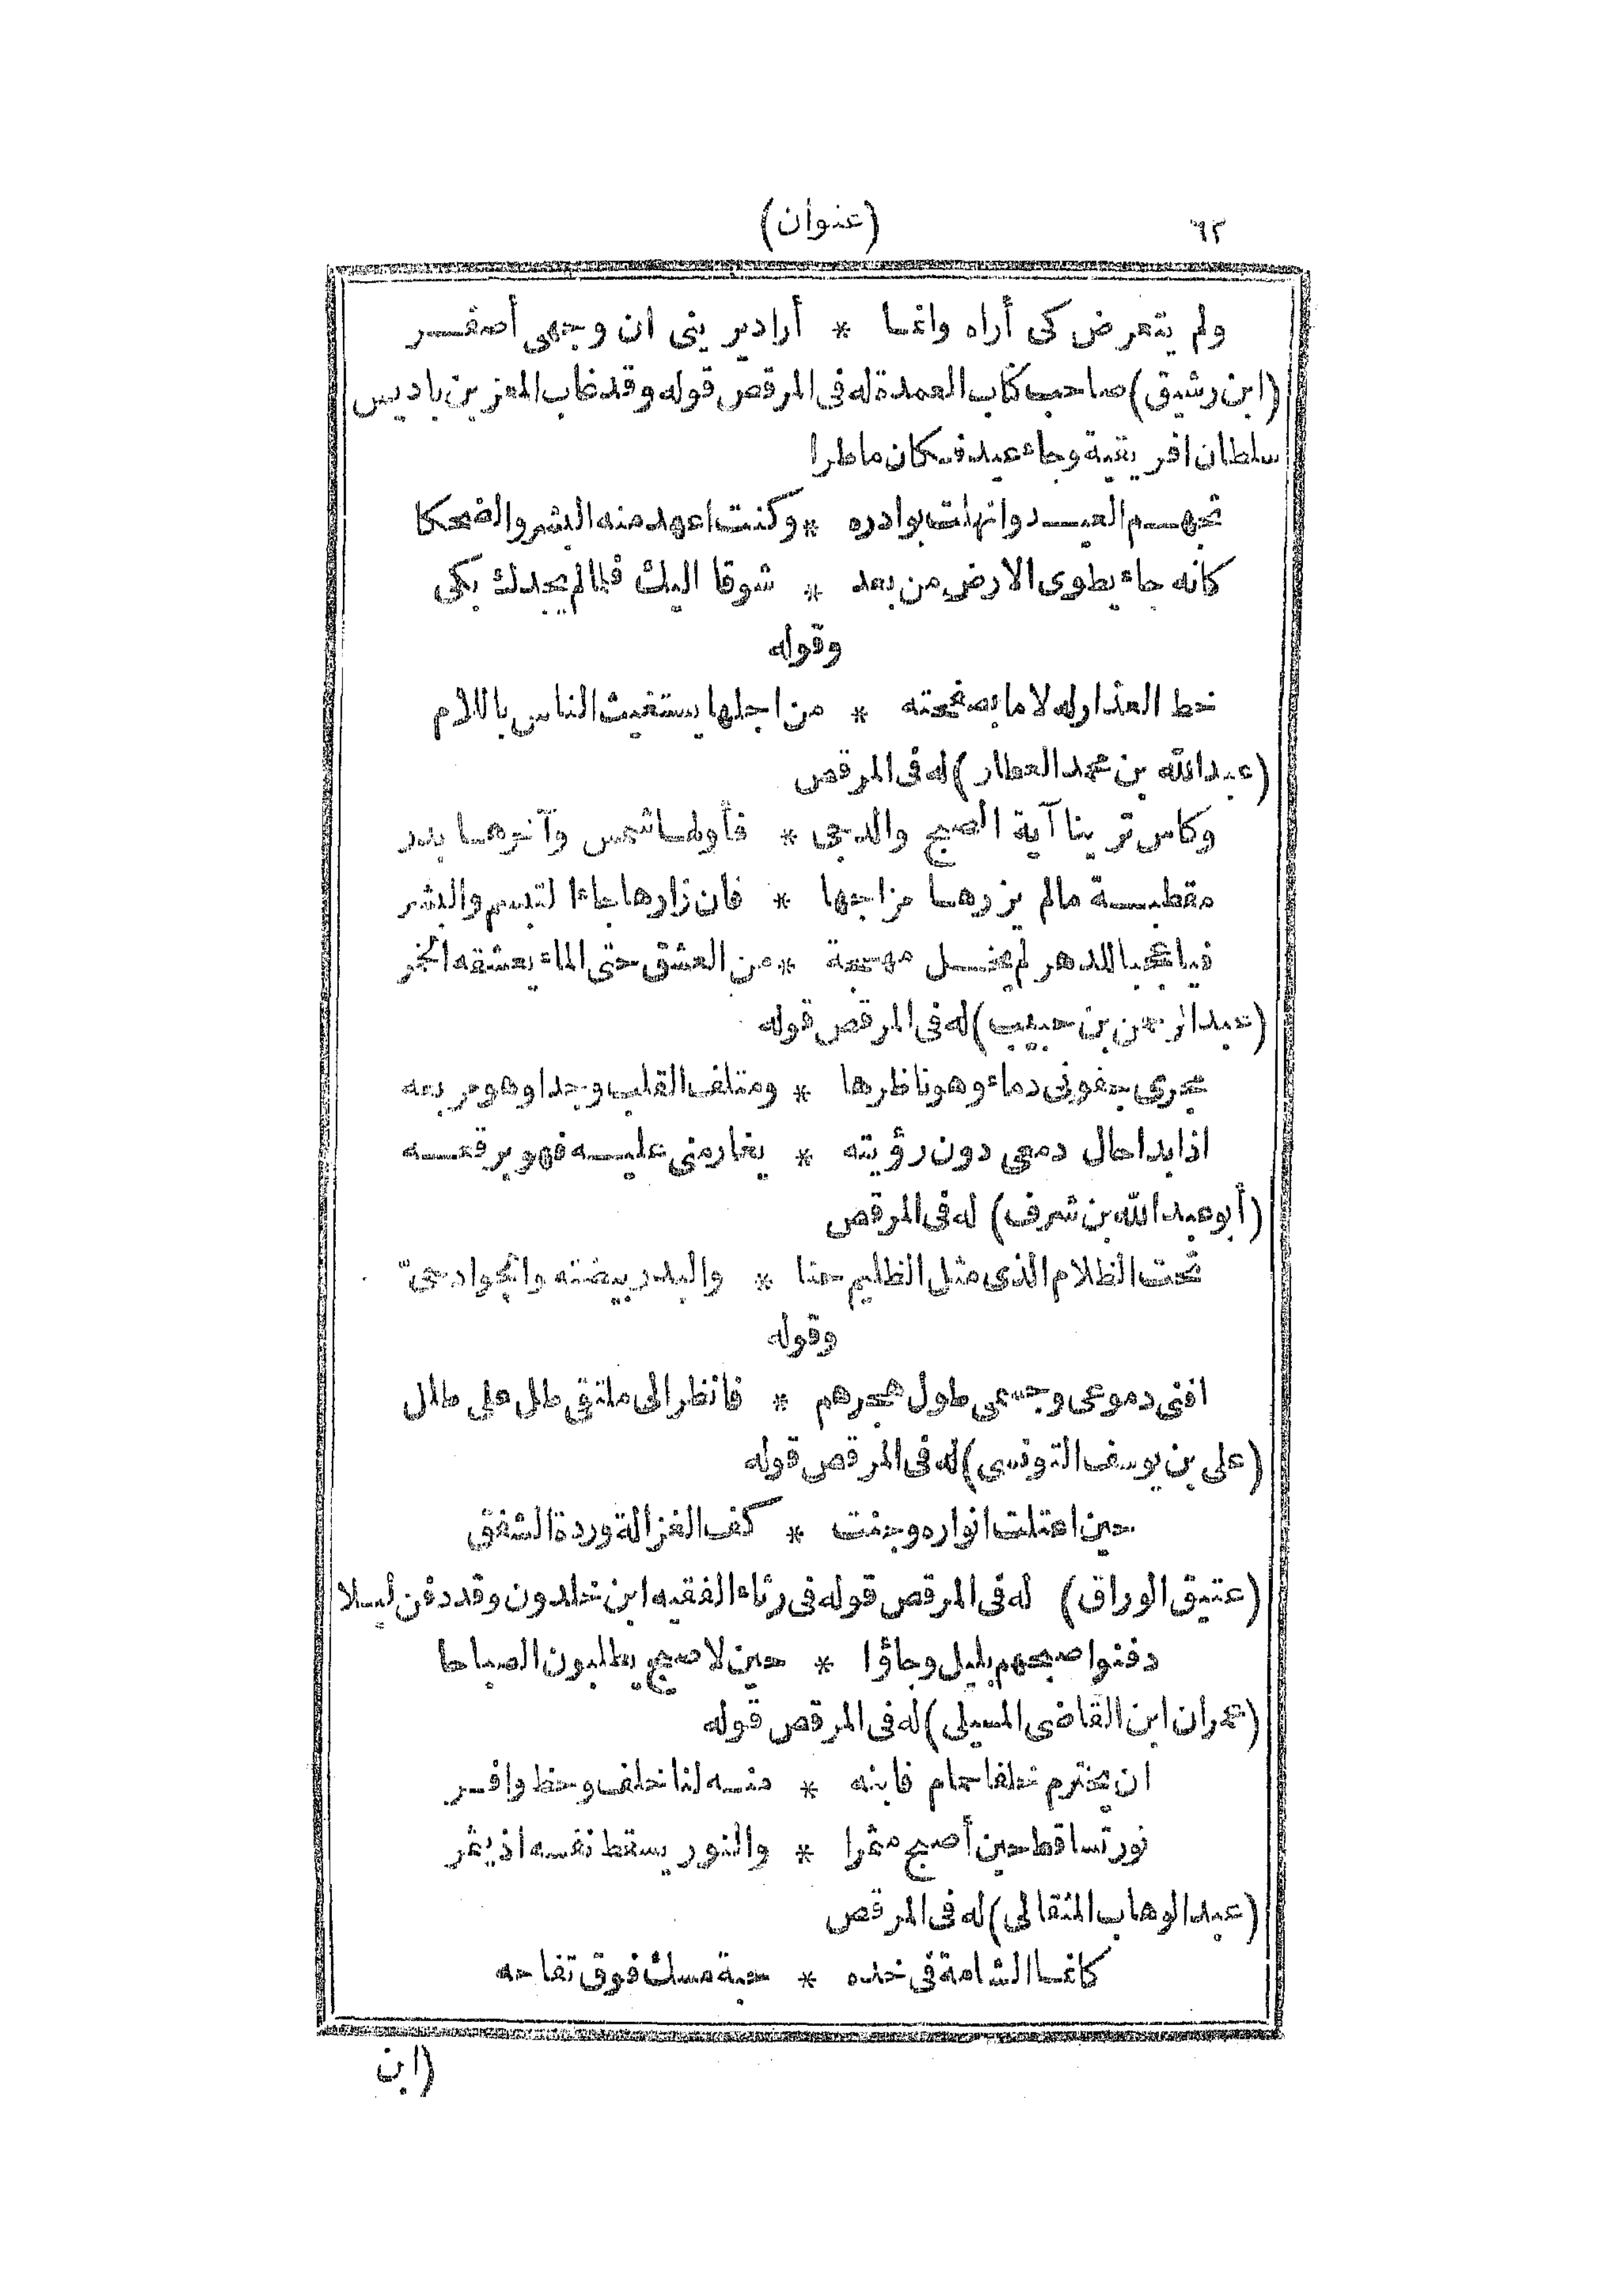 ٦٢
(عنوان)
ولم يتعرض كى أراه وانما * أراد يرينى ان وجهى أصفر
(ابن رشيق) صاحب كتاب العمدة له فى المرقص قوله وقد غاب المعز بن باديس
سلطان افريقية وجاء عيد فكان ماطرا
تجهم العيد وانهلت بوادره * وكنت اعهد منه البشر والضحكا
كانه جاء يطوى الارض من بعد * شوقا اليك فلما لم يجدك بكى
وقوله
خط العذار له لاما بصفحته * من اجلها يستغيث الناس باللام
(عبدالله بن محمد العطار) له فى المرقص
وكاس ترينا آية الصبح والدجى * فأولها شمس وآخرها بدر
مقطبة مالم يزرها مزاجها * فان زارها جاء التبسم والبشر
فيا عجبا للدهر لم يخل مهجة * من العشق حتى الماء يعشقه الخمر
(عبد الرحمن بن حبيب) له فى المرقص قوله
يجرى جفونى دماء وهو ناظرها * ومتلف القلب وجدا وهو مربعه
اذا بدا حال دمعى دون رؤيته * يغار منى عليه فهو برقعه
(أبو عبد الله بن شرف) له فى المرقص
تحت الظلام الذى مثل الظليم حنا * والبدر بيضته والجوادجىّ
وقوله
افنى دموعى وجسمى طول هجرهم * فانظر الى ملتقى طلل على طلل
(على بن يوسف التونسى) له فى المرقص قوله
حين اعتلت انواره وجنت * كف الغزالة وردة الشفق
(عتيق الوراق) له فى المرقص قوله فى رثاء الفقيه ابن خلدون وقد دفن ليلا
دفنوا صبحهم بليل وجاؤا * حين لا صبح يطلبون الصباحا
(عمران ابن القاضى المسيلى) له فى المرقص قوله
ان يخترم خلفا حمام فابنه * منه لنا خلف وحظ وافر
نور تساقط حين أصبح مثمرا * والنور يسقط نفسه اذ يثمر
(عبد الوهاب المثقالى) له فى المرقص
كانما الشامة فى خده * حبة مسك فوق تفاحه
(ابن